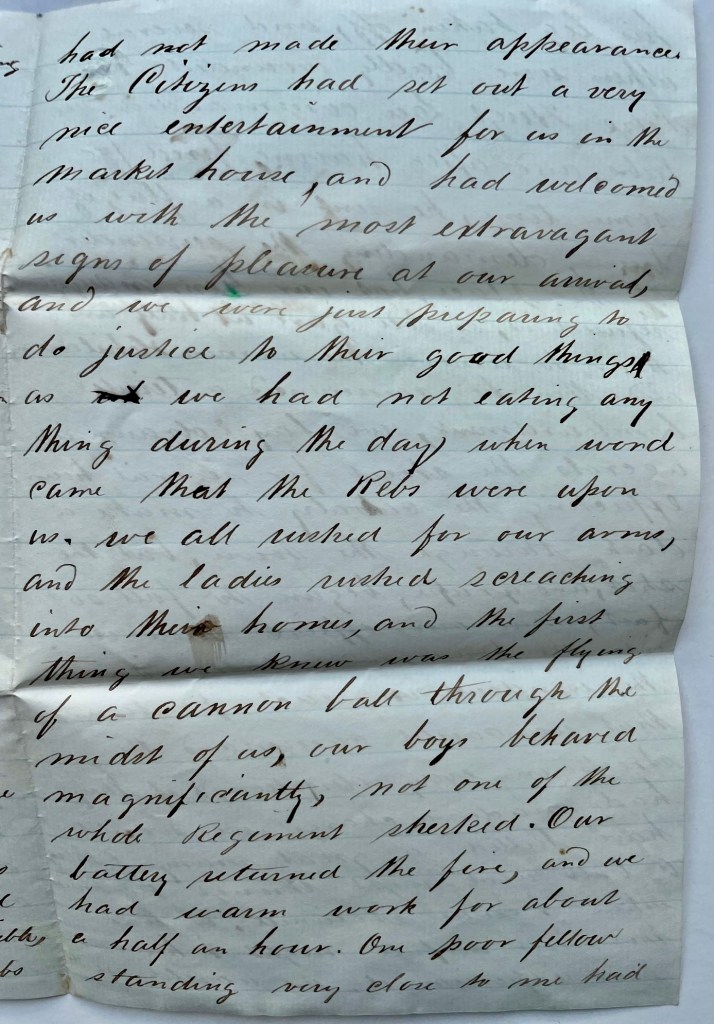 had not made their appearance
The Citizens had set out a very
nice entertainment for us in the
market house, and had welcomed
us with the most extravagant
signs of pleasure at our arrival,
and we were just preparing to
do justice to their good things
as we had not eating any
thing during the day, when word
came that the Rebs were upon
us. we all rushed for our arms,
and the ladies rushed screaching
into their homes, and the first
thing we knew was the flying
of a cannon ball through the
midst of us, our boys behaved
magnificiantly, not one of the
whole Regiment sherked. Our
battery returned the fire, and we
had warm work for about
a half an hour. One poor fellow
standing very close to me had